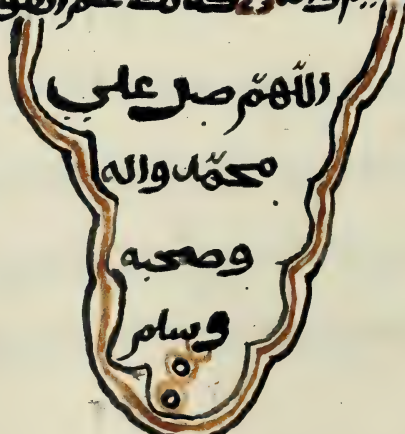 اللّهمّ صل علي
محمّد واله
وصحبه
وسلم